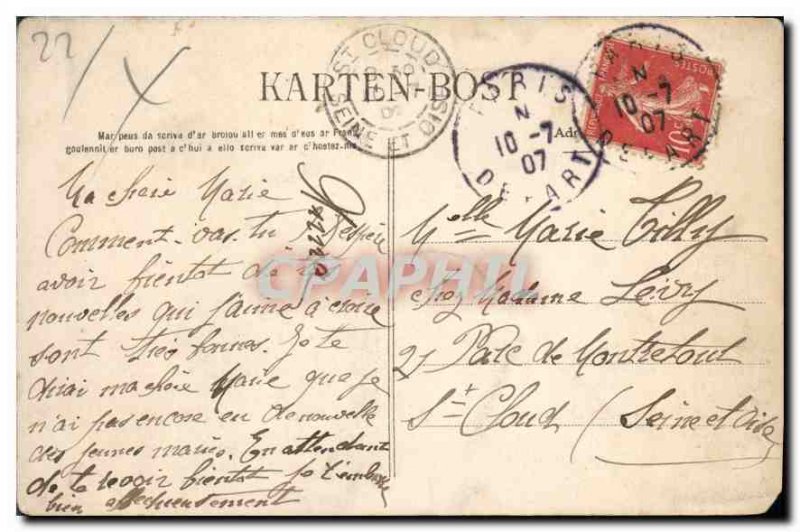 22/
X
ST CLOUD
SEINE ET OISE
KARTEN-POST
PARIS
N
10 -7
07
DEPART
PARIS
N
10 -7
07
DEPART
10
Mar peus da scriva d'ar broiou all er mes d'eus ar Frans
goulennit er buro post a c'hui a ello scriva var ar c'hostez-ma
Adr
Ma chère Marie
Comment vas tu J'espère
avoir bientot de tes
nouvelles qui j'aime à croire
sont très bonnes. Je te
dirai ma chère Marie que je
n'ai pas encore eu de nouvelle
des jeunes mariés. En attendant
de te revoir bientot je t'embrasse
bien affectueusement
Melle Marie Tilly
chez Madame Levy
27 Parc de Montretout
St Cloud (Seine et Oise
CPAPHIL